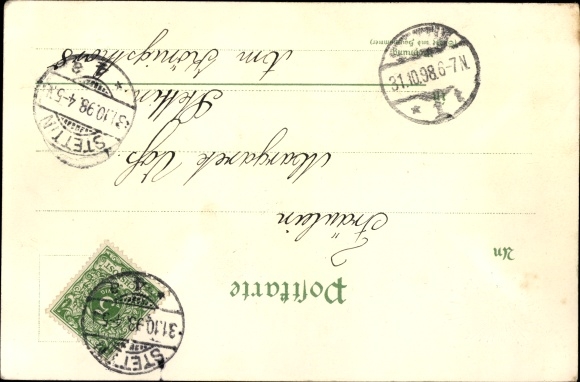 Postkarte
An
Fräulein
Margarete Voß.
Stettin.
Am Königsthor
STETTIN
31.10.98. 4-5N.
* 1 a
31.10.98. 6-7N.
STETTIN
31.10.98
* 1 a
5